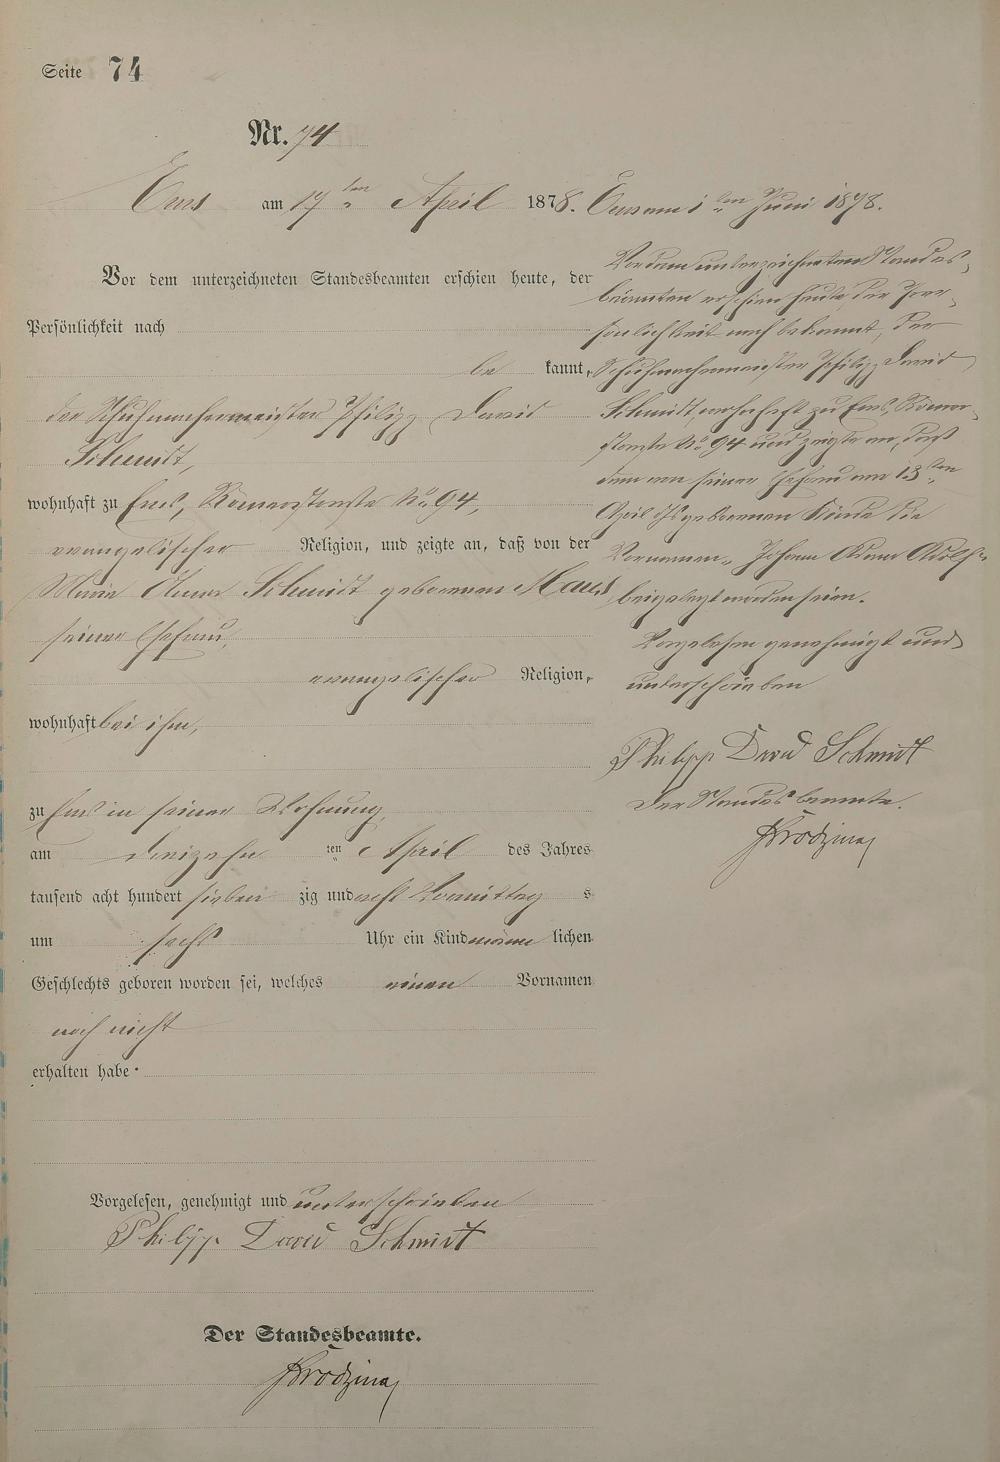 Seite 74
Nr. 74
Ems am 17ten April 1878.
Vor dem unterzeichneten Standesbeamten erschien heute, der
Persönlichkeit nach
be kannt,
der Schuhmachermeister Philipp David
Schmidt,
wohnhaft zu Ems, Römerstraße No 94,
evangelischer Religion, und zeigte an, daß von der
Marie Schmidt geborenen Maus
seiner Ehefrau,
evangelischer Religion,
wohnhaft bei ihm,
zu Ems in seiner Wohnung,
am dreizehn ten April des Jahres
tausend acht hundert sieben zig und acht Vormittag s
um sechs Uhr ein Kind männ lichen
Geschlechts geboren worden sei, welches einen Vornamen
noch nicht
erhalten habe.
Vorgelesen, genehmigt und unterschrieben
Philipp David Schmidt
Der Standesbeamte.
Ems am 1ten Juni 1878.
Vor dem unterzeichneten Standes-
beamten erschien heute, der Per-
sönlichkeit nach bekannt, der
Schuhmachermeister Philipp David
Schmidt, wohnhaft zu Ems, Römer-
straße No 94 und zeigte an, daß
dem von seiner Ehefrau am 13ten
April geborenen Kinde die
Vornamen „Johann Adolf“
beigelegt worden seien.
Vorgelesen genehmigt und
unterschrieben
Philipp David Schmidt
Der Standesbeamte.